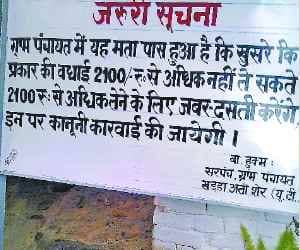 जरुरी सूचना
ग्राम पंचायत में यह मता पास हुआ है कि सुसरे कि
प्रकार की वधाई 2100/-रु से अधिक नहीं ले सकते
2100 रु. से अधिक लेने के लिए जबर-दसती करेंगे
इन पर कानूनी कारवाई की जायेगी ।
बा. हुक्म :
सरपंच, ग्राम पंचायत
खुड्डा अली शेर (यू.टी.